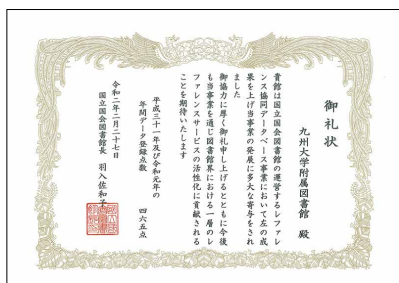 御礼状
九州大学附属図書館 殿
貴館は国立国会図書館の運営するレファレ
ンス協同データベース事業において左の成
果を上げ当事業の発展に多大な寄与をされ
ました
御協力に厚く御礼申し上げるとともに今後
も当事業を通じ図書館界における一層のレ
ファレンスサービスの活性化に貢献される
ことを期待いたします
平成三十一年及び令和元年の
年間データ登録点数 四六五点
令和二年二月二十七日
国立国会図書館長 羽入佐和子